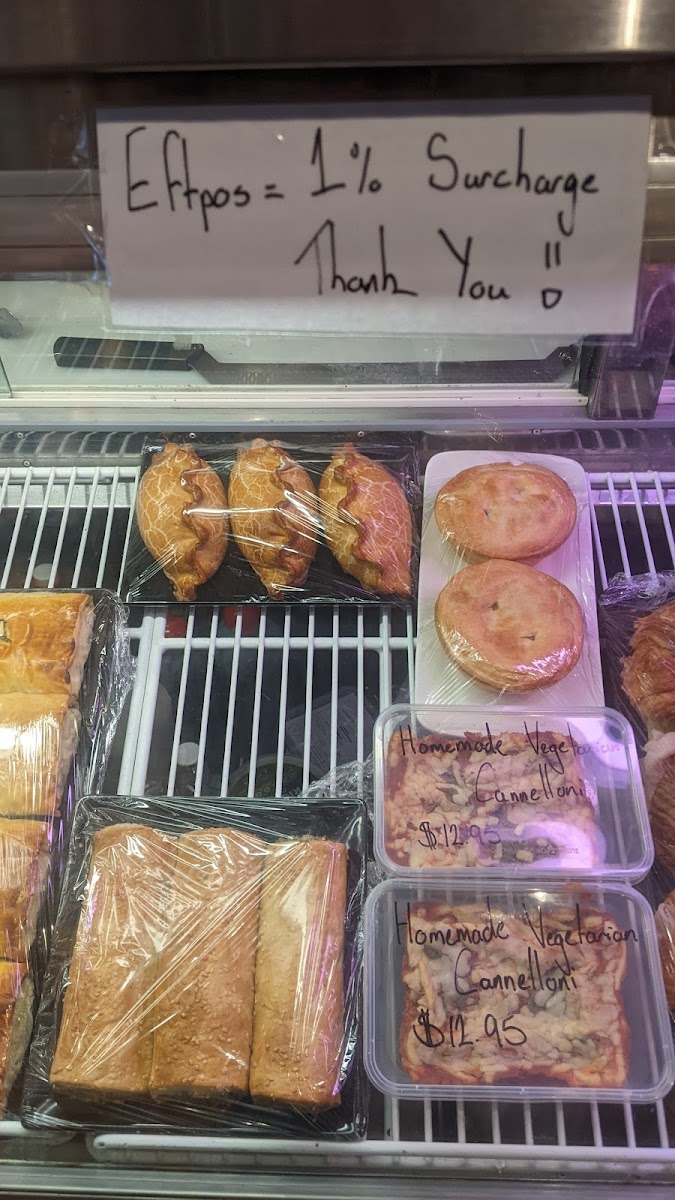 Eftpos = 1% Surcharge
Thank You !!
Homemade Vegetarian
Cannelloni
$12.95
Homemade Vegetarian
Cannelloni
$12.95